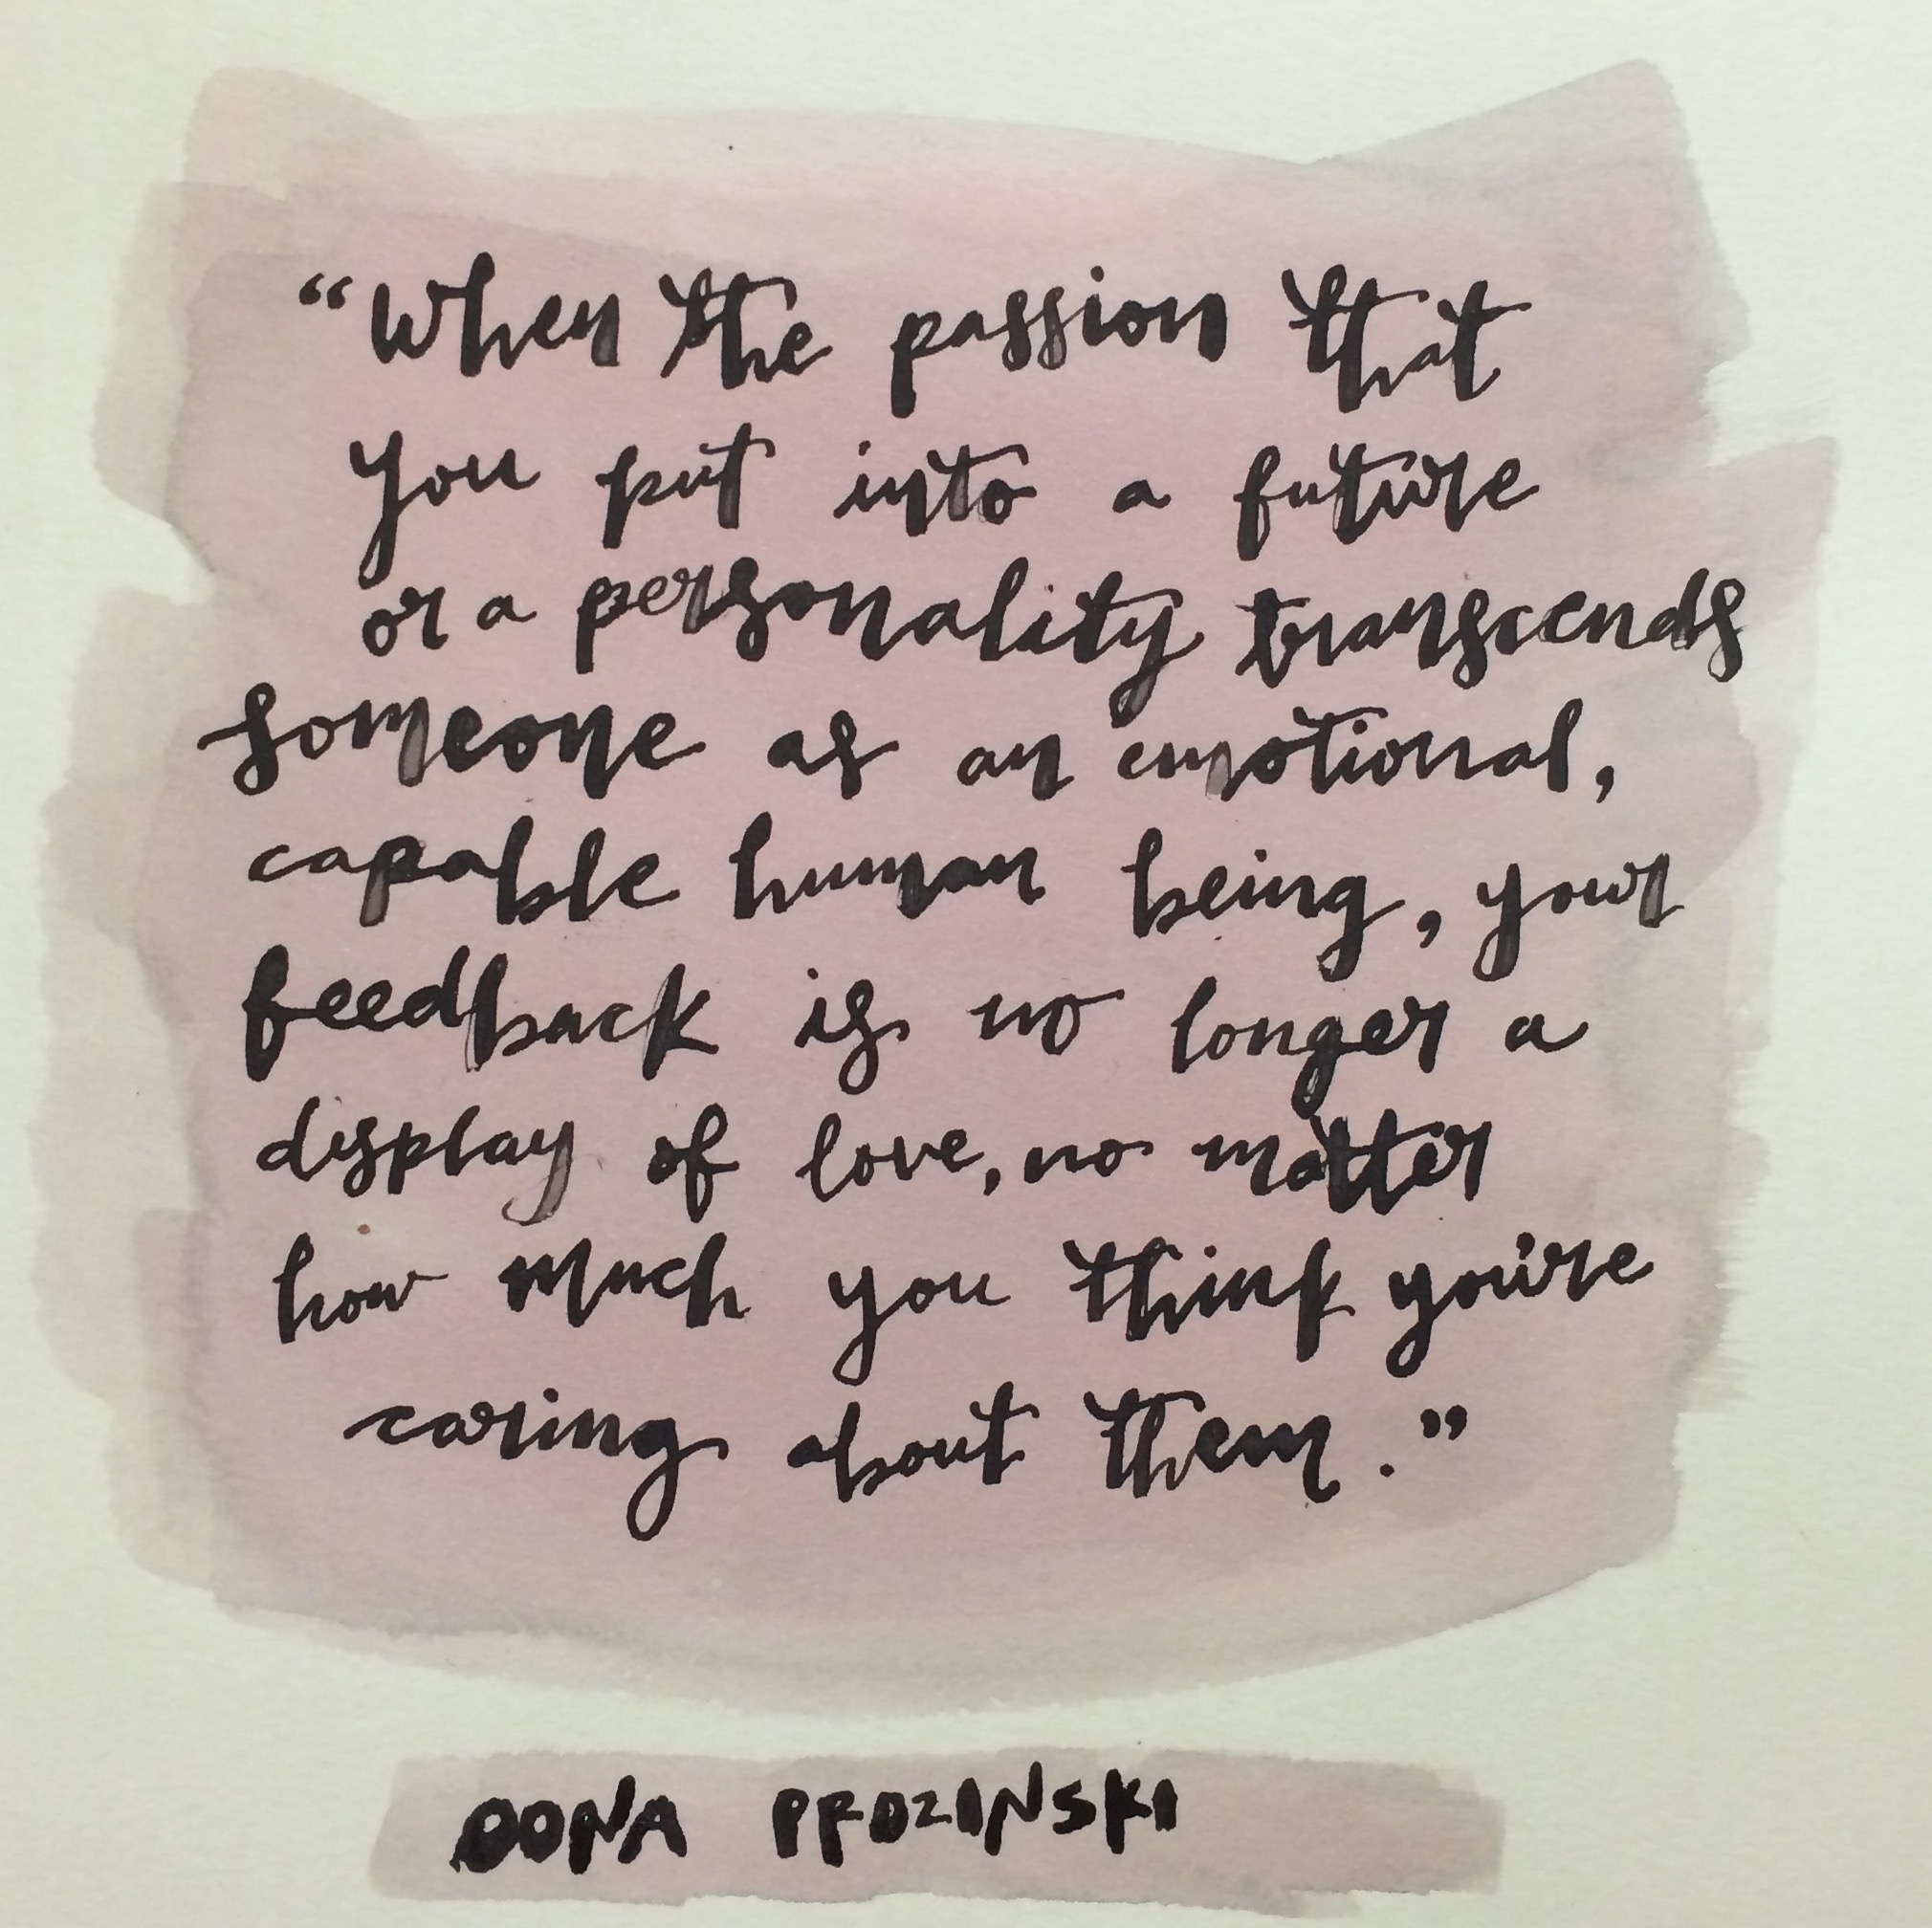 “When the passion that
you put into a future
or a personality transcends
someone as an emotional,
capable human being, your
feedback is no longer a
display of love, no matter
how much you think you're
caring about them.”
DONA PROZINSKI